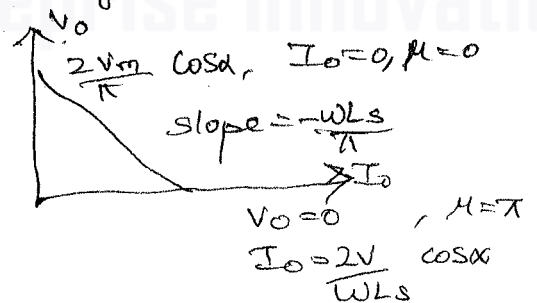 Vo
2Vm/π cosα, Io=0, μ=0
slope = -WLs/π
Io
Vo=0, μ=π
Io=2V/WLs cosα